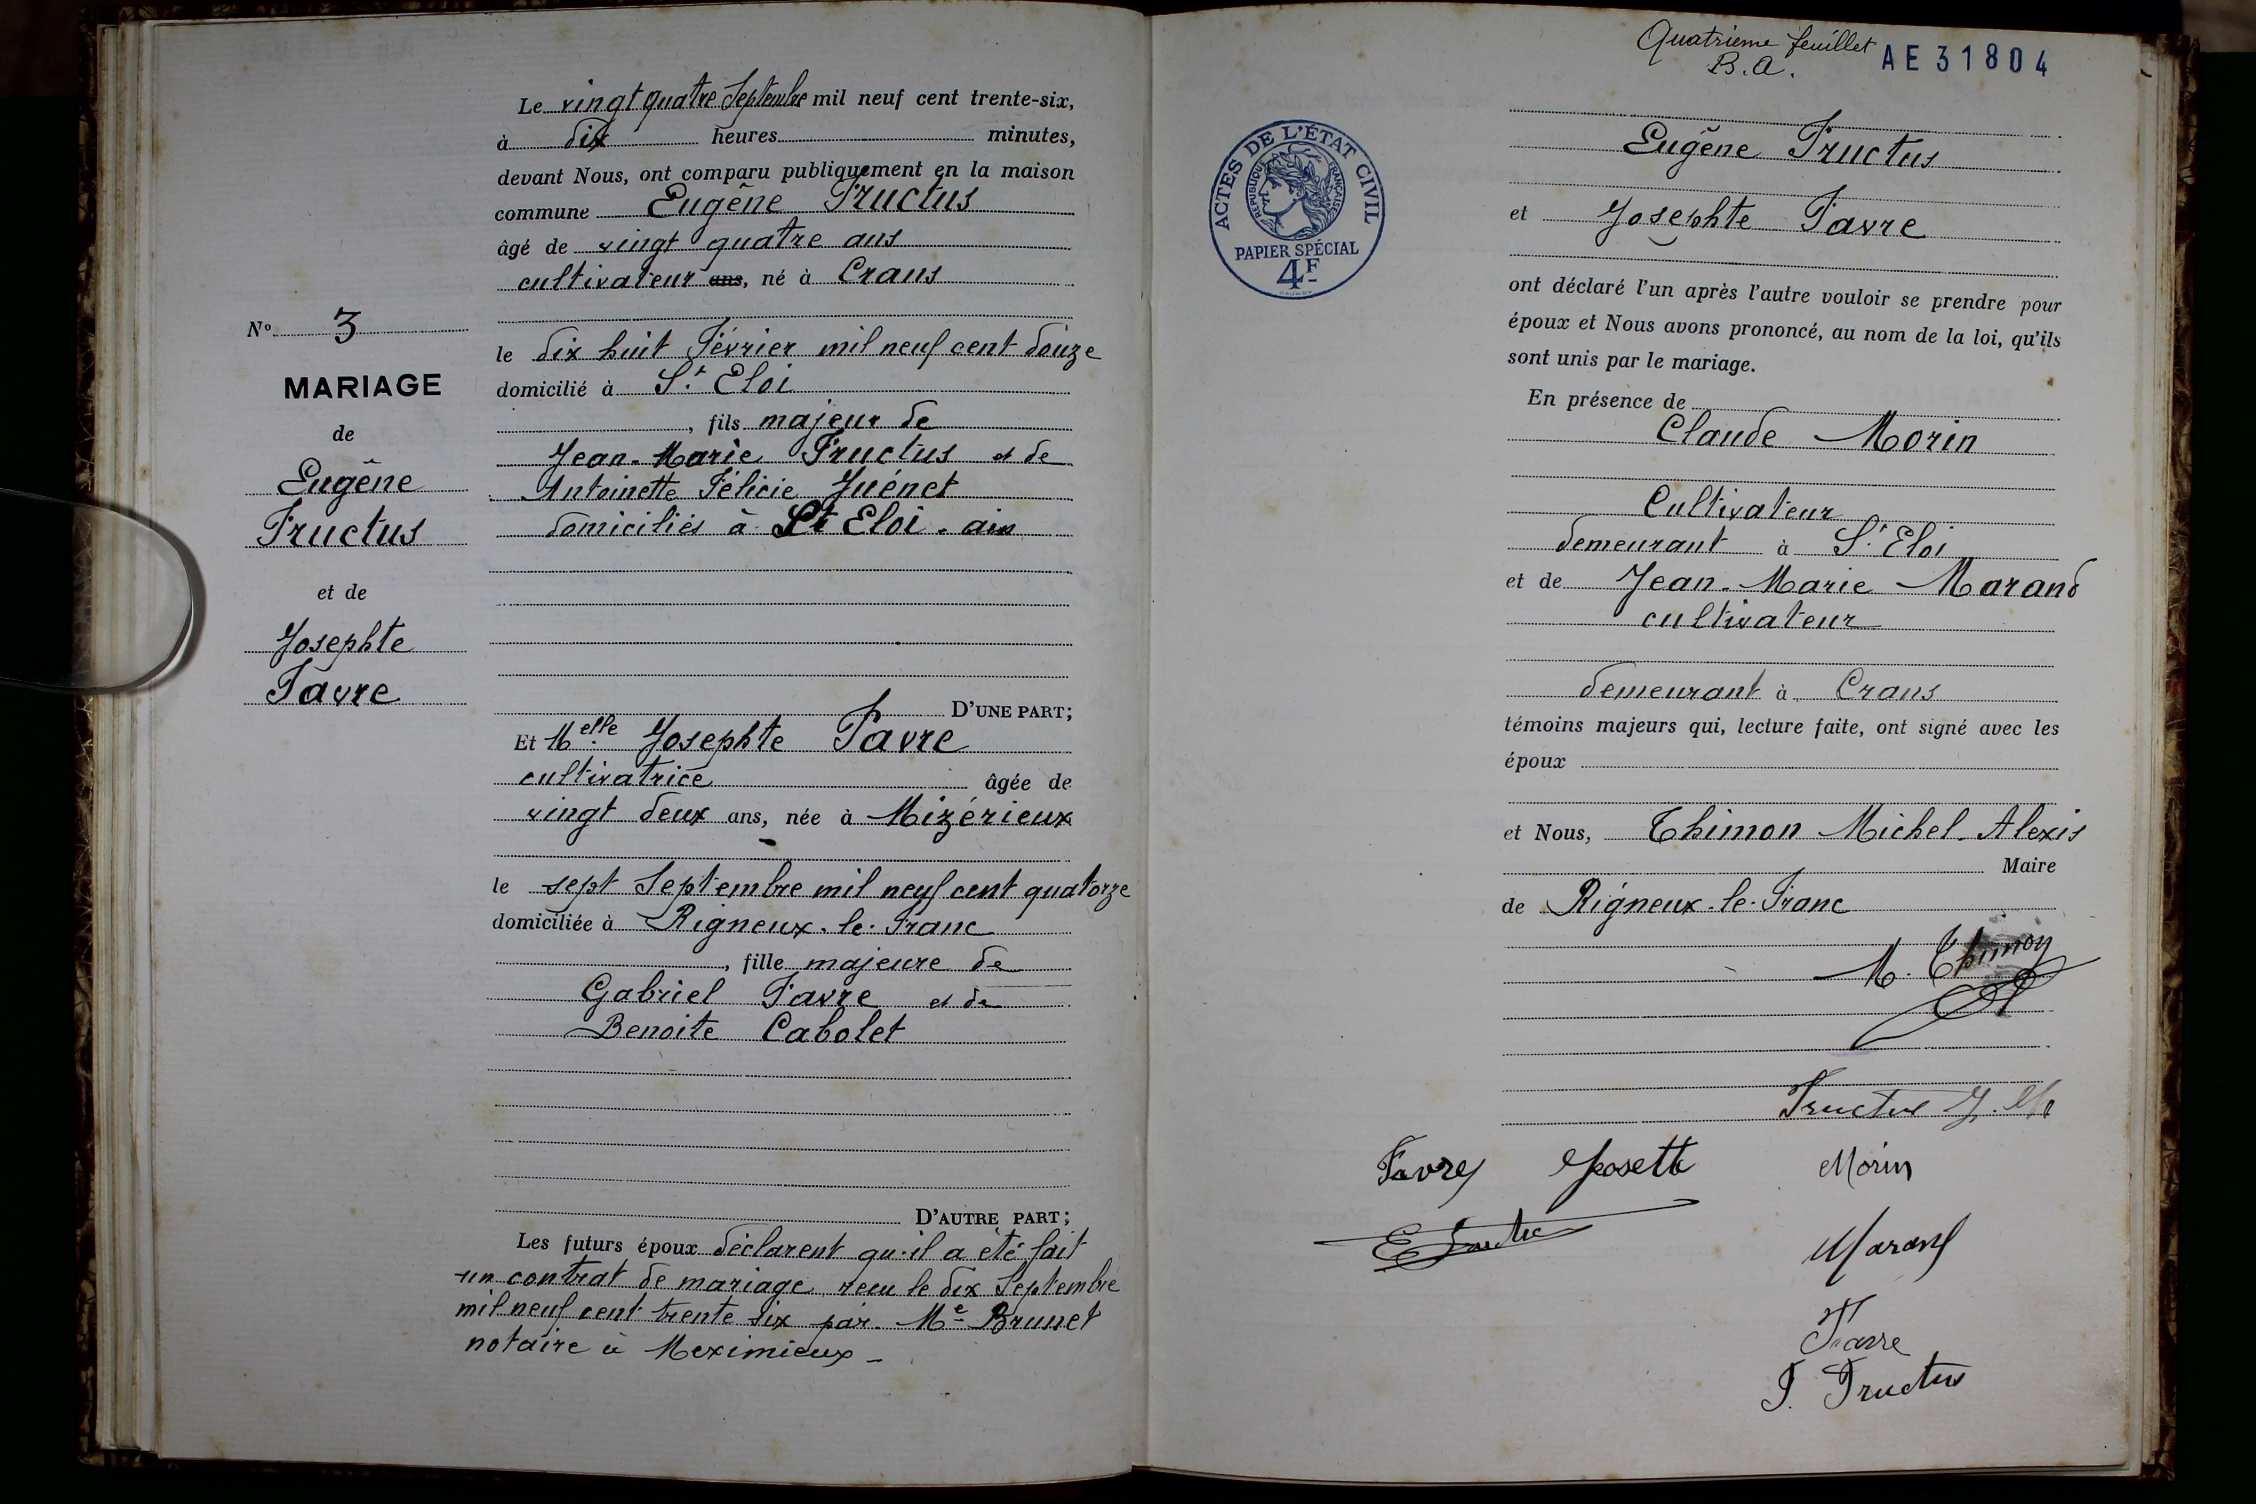 Le vingt quatre Septembre mil neuf cent trente-six,
à dix heures minutes,
devant Nous, ont comparu publiquement en la maison
commune Eugène Fructus
âgé de vingt quatre ans
cultivateur ans, né à Crans
le dix huit Février mil neuf cent douze
domicilié à St Eloi
, fils majeur de
Jean-Marie Fructus et de
Antoinette Félicie Juénet
domiciliés à St Eloi - ain
D'UNE PART;
Et Melle Josephte Favre
cultivatrice âgée de
vingt deux ans, née à Mizérieux
le sept Septembre mil neuf cent quatorze
domiciliée à Rigneux-le-Franc
, fille majeure de
Gabriel Favre et de
Benoite Cabolet
D'AUTRE PART;
Les futurs époux déclarent qu'il a été fait
un contrat de mariage recu le dix Septembre
mil neuf cent trente six par Me Brunet
notaire à Meximieux -
No 3
MARIAGE
de
Eugène
Fructus
et de
Josephte
Favre
Quatrieme feuillet
B.A.
AE31804
ACTES DE L'ÉTAT CIVIL
REPUBLIQUE FRANÇAISE
PAPIER SPÉCIAL
4F
Eugène Fructus
et Josephte Favre
ont déclaré l'un après l'autre vouloir se prendre pour
époux et Nous avons prononcé, au nom de la loi, qu'ils
sont unis par le mariage.
En présence de
Claude Morin
Cultivateur
demeurant à St Eloi
et de Jean-Marie Marand
cultivateur
demeurant à Crans
témoins majeurs qui, lecture faite, ont signé avec les
époux
et Nous, Thimon Michel-Alexis
Maire
de Rigneux-le-Franc
M. Thimon
Fructus J.
Favre Josette Morin
E Fructus
Marand
Favre
F. Fructus